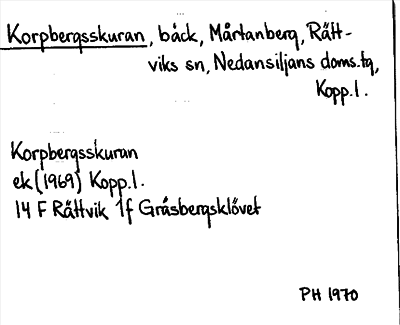 Korpbergsskuran, bäck, Mårtanberg, Rätt-
viks sn, Nedansiljans doms.tg,
Kopp.l.
Korpbergsskuran
ek (1969) Kopp.l.
14 F Rättvik 1f Gråsbergsklövet
PH 1970